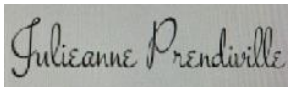 Julieanne Prendiville